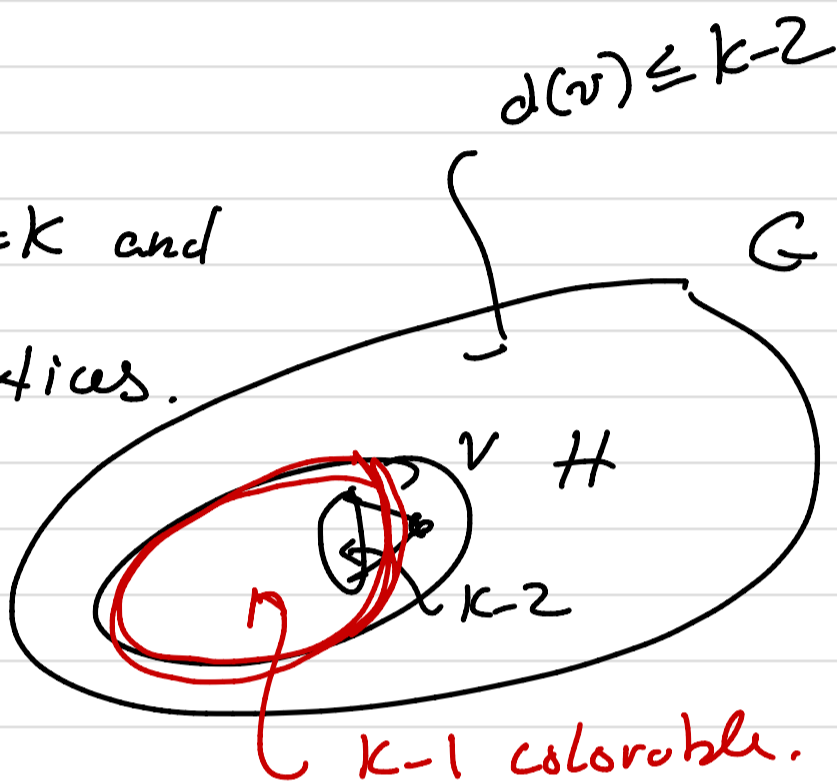 d(v) ≤ k-2
=K and
G
tices.
v H
k-2
k-1 colorable.